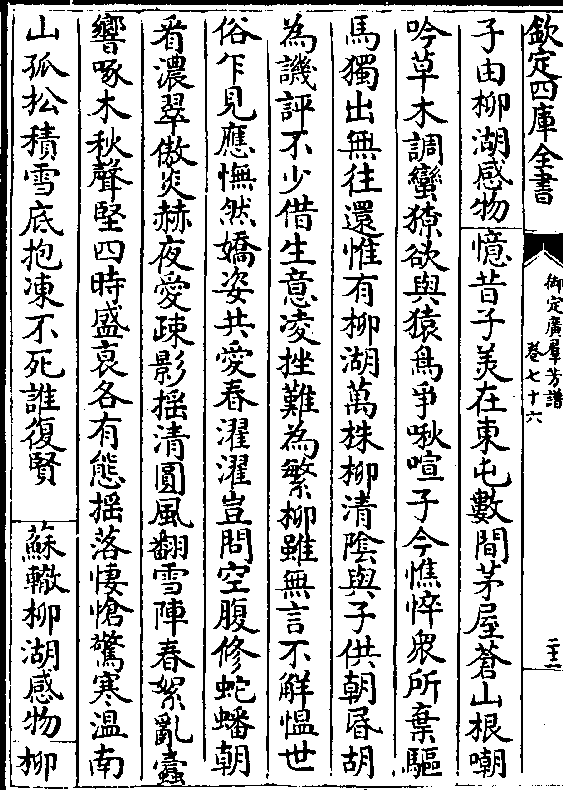 欽定四庫全書
御定廣羣芳譜
卷七十六
子由柳湖感物 憶昔子美在東屯數間茅屋蒼山根嘲
吟草木調蠻獠欲與猿鳥爭啾喧子今憔悴衆所棄驅
馬獨出無往還惟有柳湖萬株柳清陰與子供朝昏胡
為譏評不少借生意凌挫難為繁柳雖無言不解愠世
俗乍見應憮然嬌姿共愛春濯濯豈問空腹修蛇蟠朝
看濃翠傲炎赫夜愛疎影揺清圓風翻雪陣春絮亂蠹
響啄木秋聲堅四時盛衰各有態揺落悽愴驚寒温南
山孤松積雪底抱凍不死誰復賢 蘇轍柳湖感物 柳